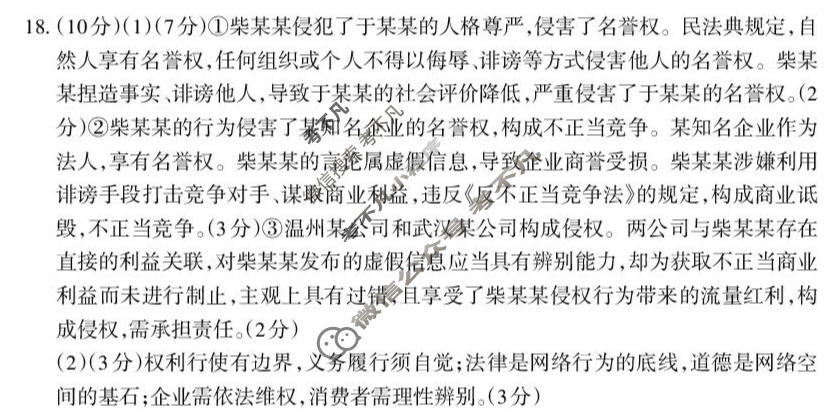 18.(10分)(1)(7分)①柴某某侵犯了于某某的人格尊严,侵害了名誉权。民法典规定,自
然人享有名誉权,任何组织或个人不得以侮辱、诽谤等方式侵害他人的名誉权。柴某
某捏造事实、诽谤他人,导致于某某的社会评价降低,严重侵害了于某某的名誉权。(2
分)②柴某某的行为侵害了某知名企业的名誉权,构成不正当竞争。某知名企业作为
法人,享有名誉权。柴某某的言论属虚假信息,导致企业商誉受损。柴某某涉嫌利用
诽谤手段打击竞争对手、谋取商业利益,违反《反不正当竞争法》的规定,构成商业诋
毁,不正当竞争。(3分)③温州某公司和武汉某公司构成侵权。两公司与柴某某存在
直接的利益关联,对柴某某发布的虚假信息应当具有辨别能力,却为获取不正当商业
利益而未进行制止,主观上具有过错,且享受了柴某某侵权行为带来的流量红利,构
成侵权,需承担责任。(2分)
(2)(3分)权利行使有边界,义务履行须自觉;法律是网络行为的底线,道德是网络空
间的基石;企业需依法维权,消费者需理性辨别。(3分)
考不凡
微信搜索考不凡
考不凡小程序
微信公众号 考不凡